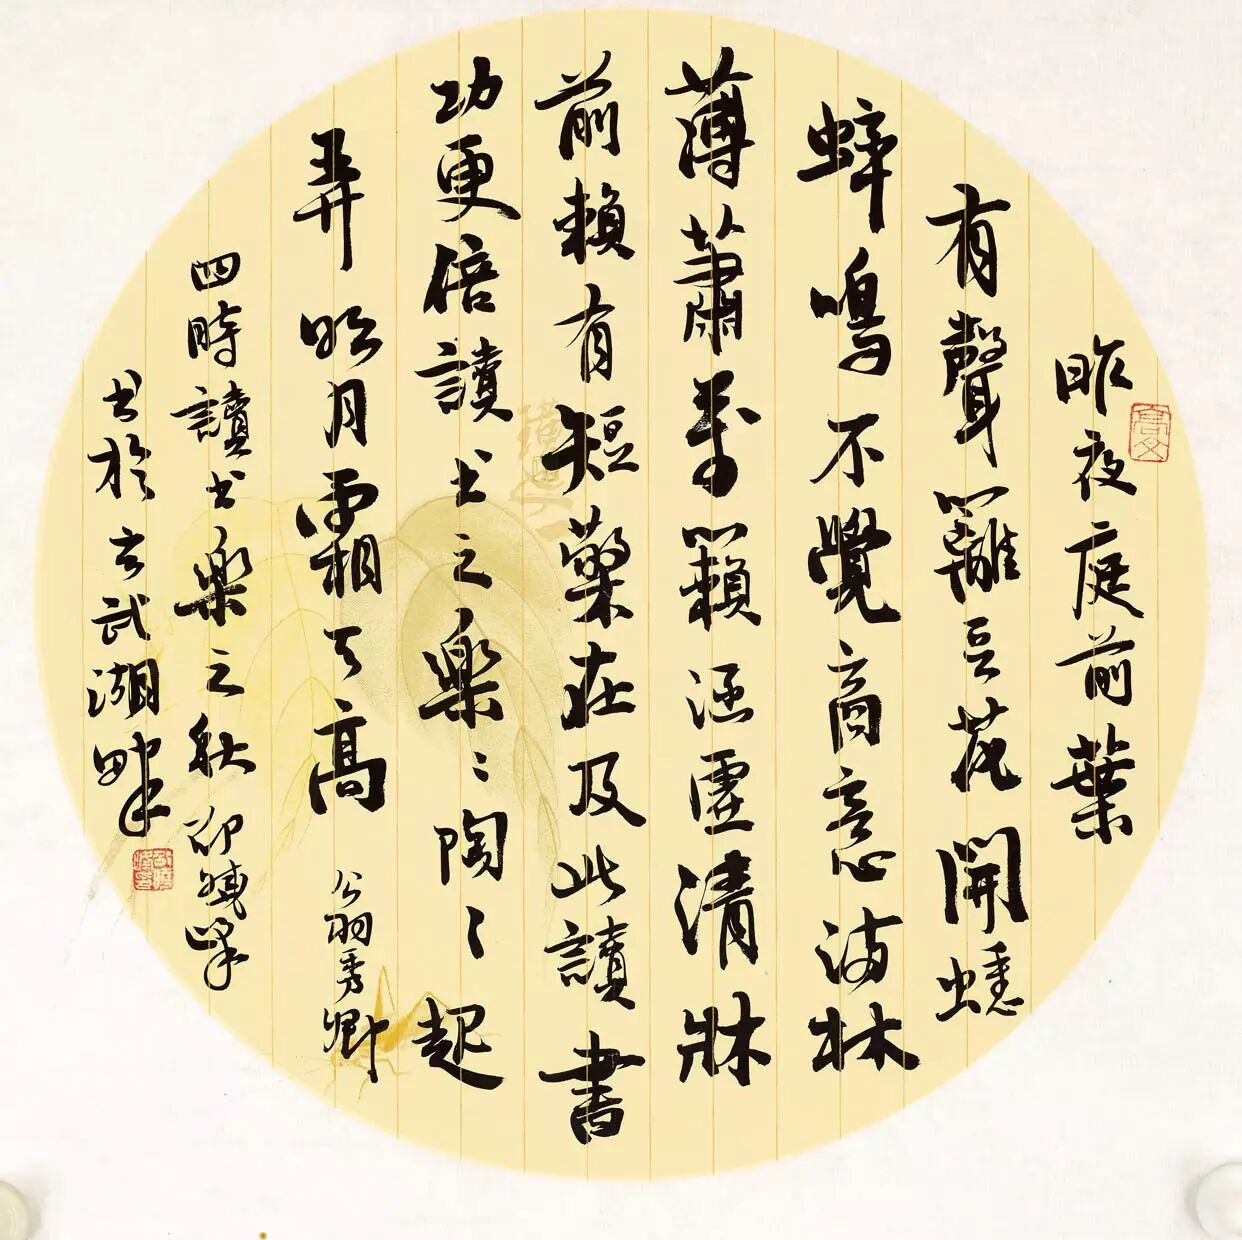 昨夜庭前葉
有聲籬豆花開蟋
蟀鳴不覺商意滿林
薄蕭萬籟涵虛清牀
前賴有短檠在及此讀書
功更倍讀書之樂〻陶〻起
弄明月霜天高 翁秀卿
四時讀書樂之秋 邵峰
書於玄武湖畔